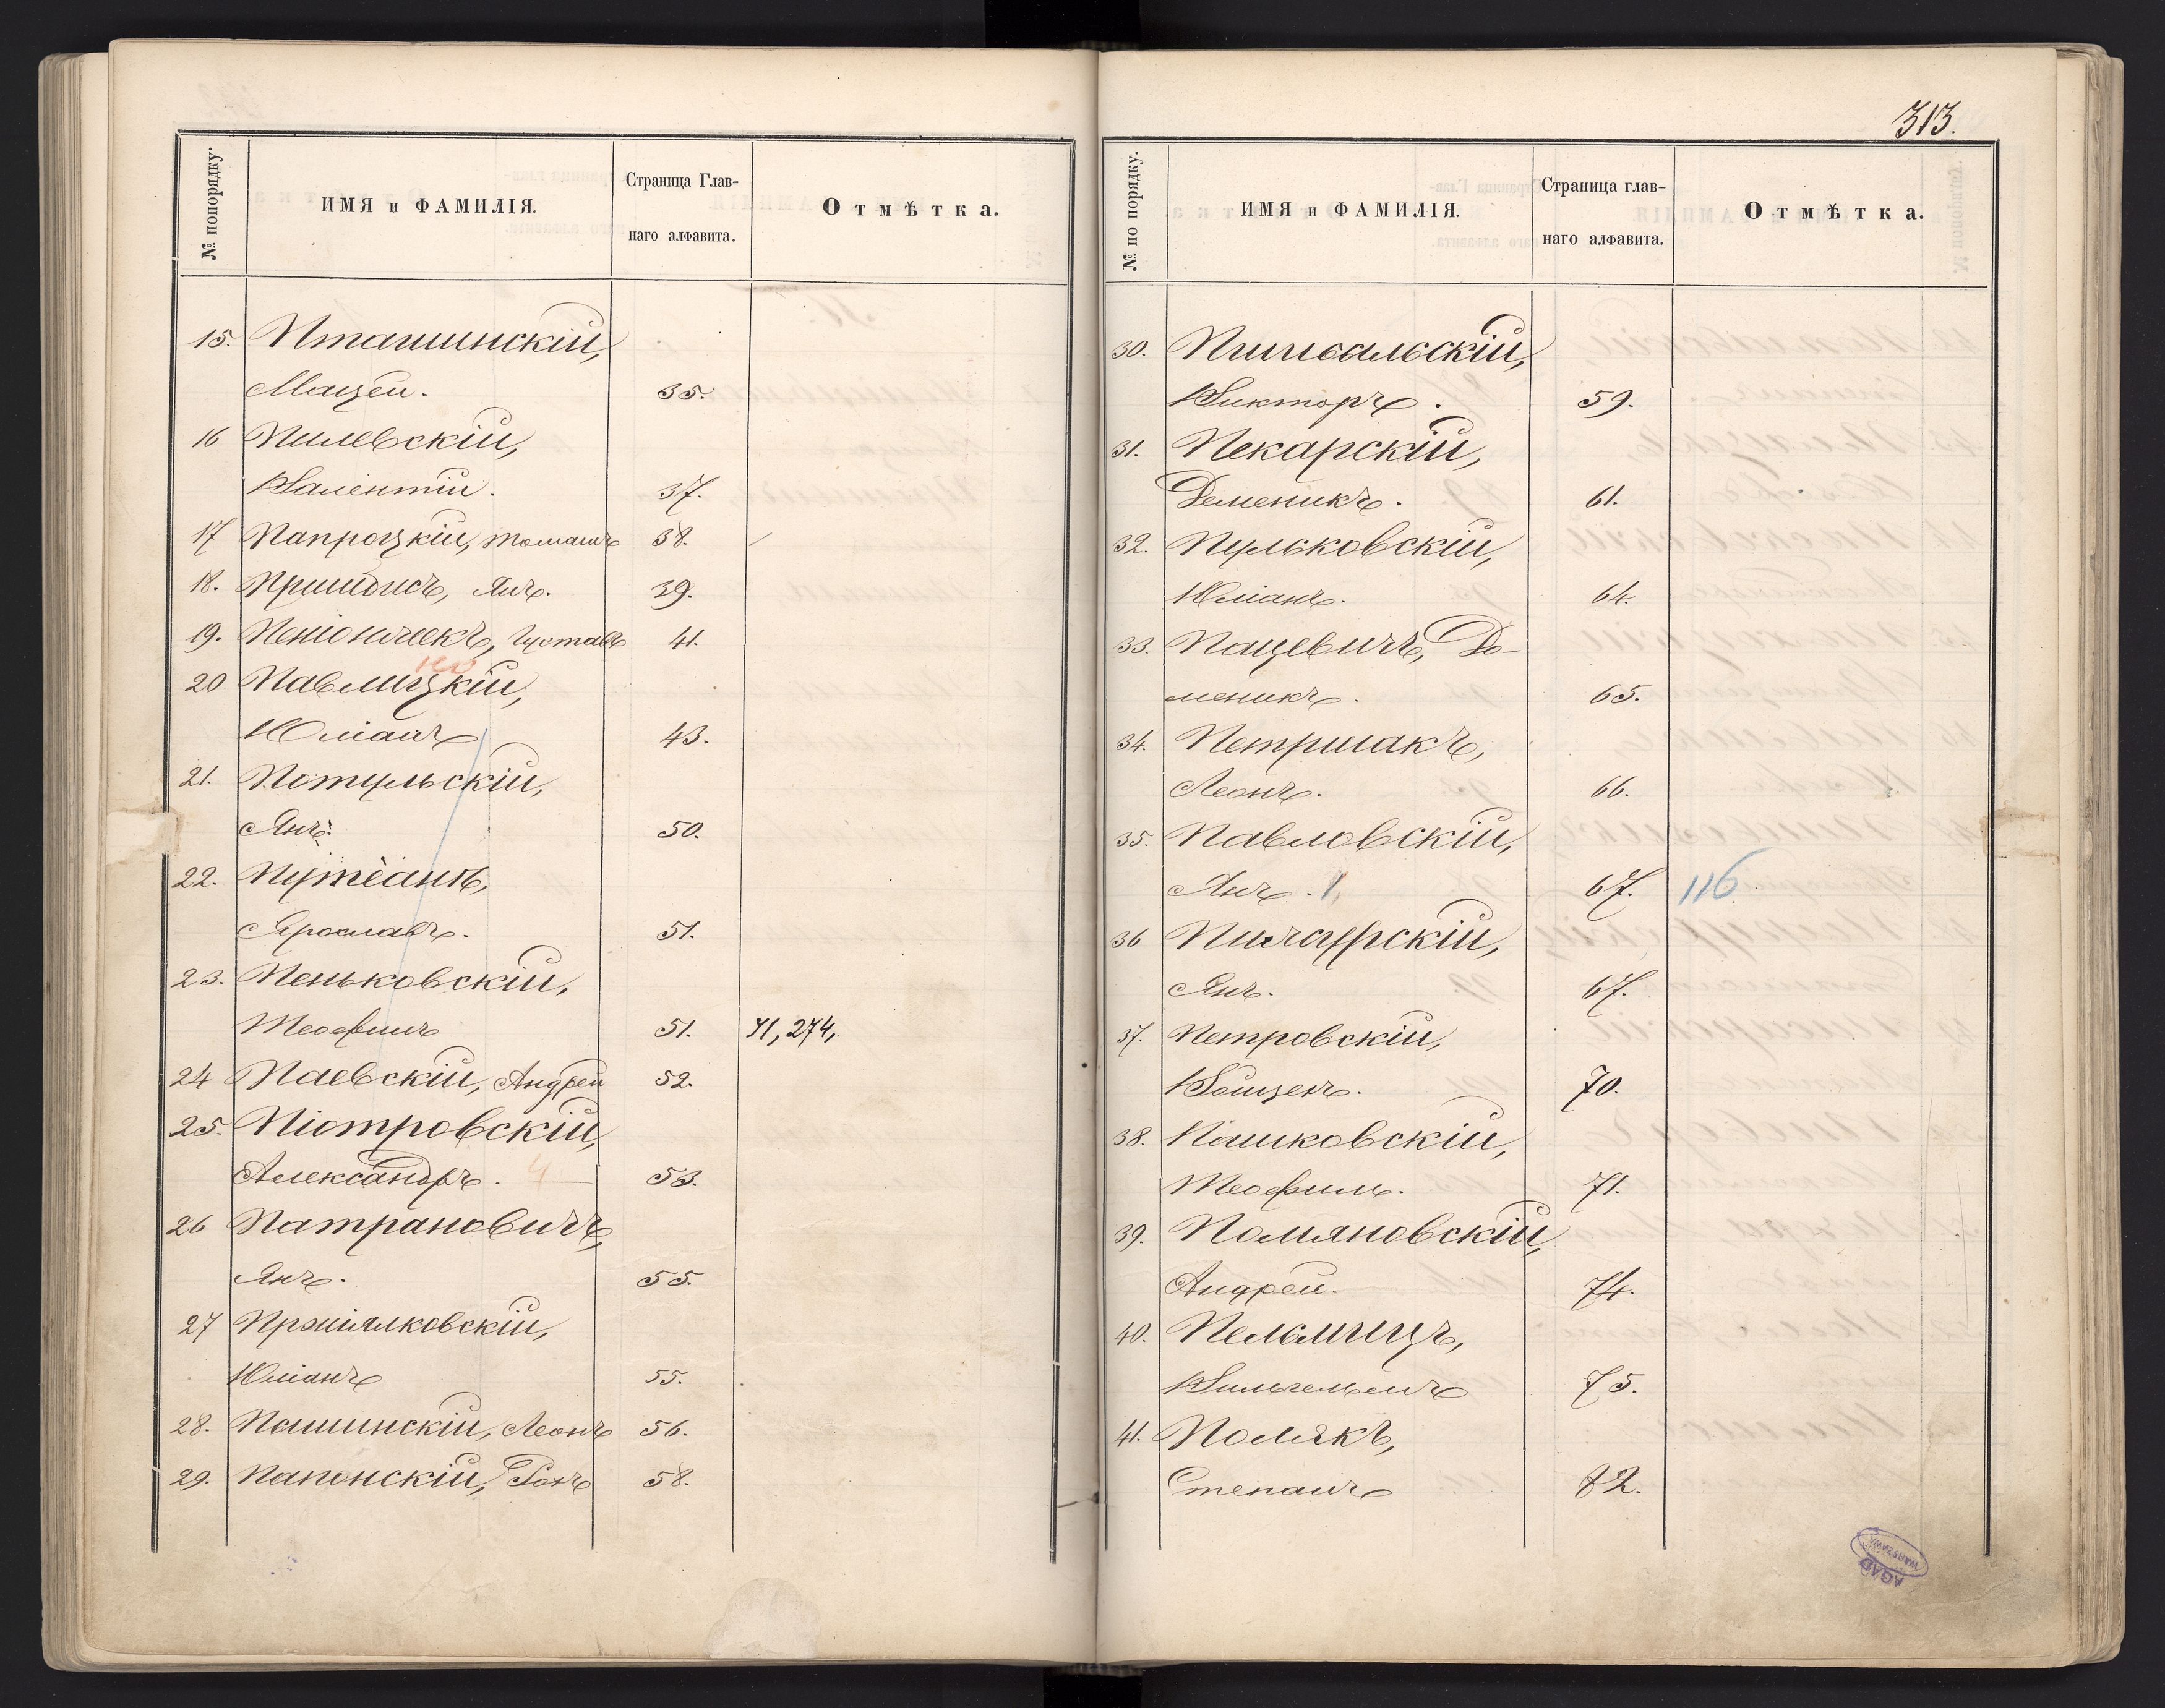 № попорядку.
ИМЯ и ФАМИЛІЯ.
Страница Глав-
наго алфавита.
Отмѣтка.
15. Пташинскій,
Мацей. 35.
16 Пилевскій,
Валентій. 37.
17 Папроцкій, Томашъ 38.
18. Янъ. 39.
19. Густавъ 41.
20 Павлицкій,
Юліанъ 43.
21. Потульскій,
Янъ. 50.
22.
Ярославъ. 51.
23. Пеньковскій,
Теофилъ 51. 71, 274,
24 Паевскій, Андрей 52.
25. Піотровскій,
Александръ. 4 53.
26 Патрановичъ,
Янъ. 55.
27 Пржіялковскій,
Юліанъ 55.
28. Пашинскій, Леонъ 56.
29. Папонскій, Рохъ 58.
313.
№ по порядку.
ИМЯ и ФАМИЛІЯ.
Страница глав-
наго алфавита.
Отмѣтка.
30.
Викторъ. 59.
31. Пекарскій,
Доменикъ. 61.
32. Пульковскій,
Юліанъ. 64.
33. Пацевичъ, До-
меникъ. 65.
34. Петришакъ,
Леонъ. 66.
35. Павловскій,
Янъ. 1, 67. 116
36
Янъ. 67.
37. Петровскій,
Войцехъ. 70.
38. Пашковскій,
Теофиль. 71.
39. Помяновскій,
Андрей. 74.
40.
Вильгельмъ 75.
41. Полякъ,
Степанъ 82.
AGAD
WARSZAWA